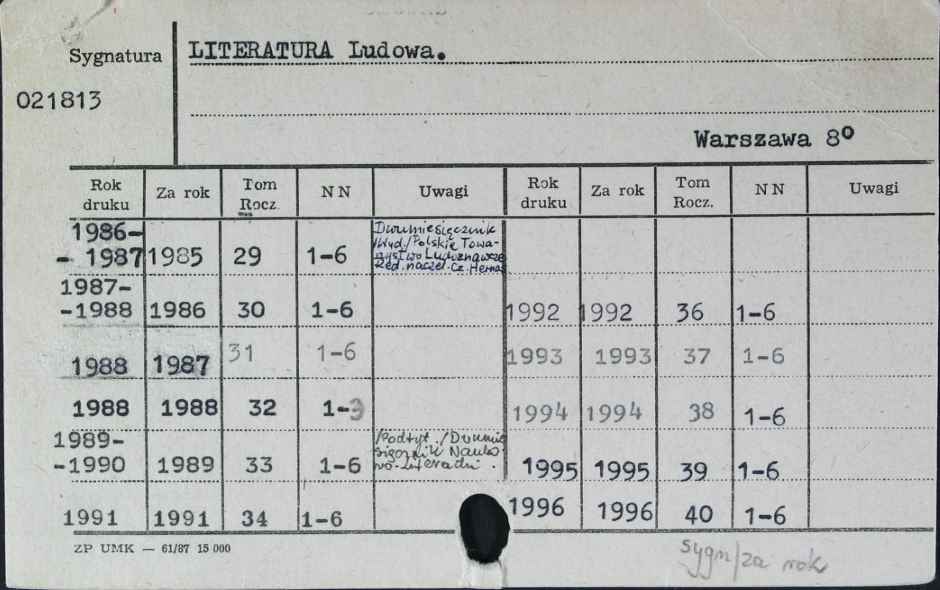 Sygnatura LITERATURA Ludowa.
021813
Warszawa 8º
Rok druku Za rok Tom Rocz. N N Uwagi Rok druku Za rok Tom Rocz. N N Uwagi
1986-
- 1987 1985 29 1-6 Dwumiesięcznik
/Wyd./Polskie Towa-
rzystwo Ludoznawcze
Red. naczel. Cz. Hernas
1987-
-1988 1986 30 1-6 1992 1992 36 1-6
1988 1987 31 1-6 1993 1993 37 1-6
1988 1988 32 1-3 1994 1994 38 1-6
1989-
-1990 1989 33 1-6 /Podtyt./Dwumie
sięcznik Nauko-
wo-Literacki. 1995 1995 39 1-6
1991 1991 34 1-6 1996 1996 40 1-6
ZP UMK — 61/87 15 000
sygn/za rok